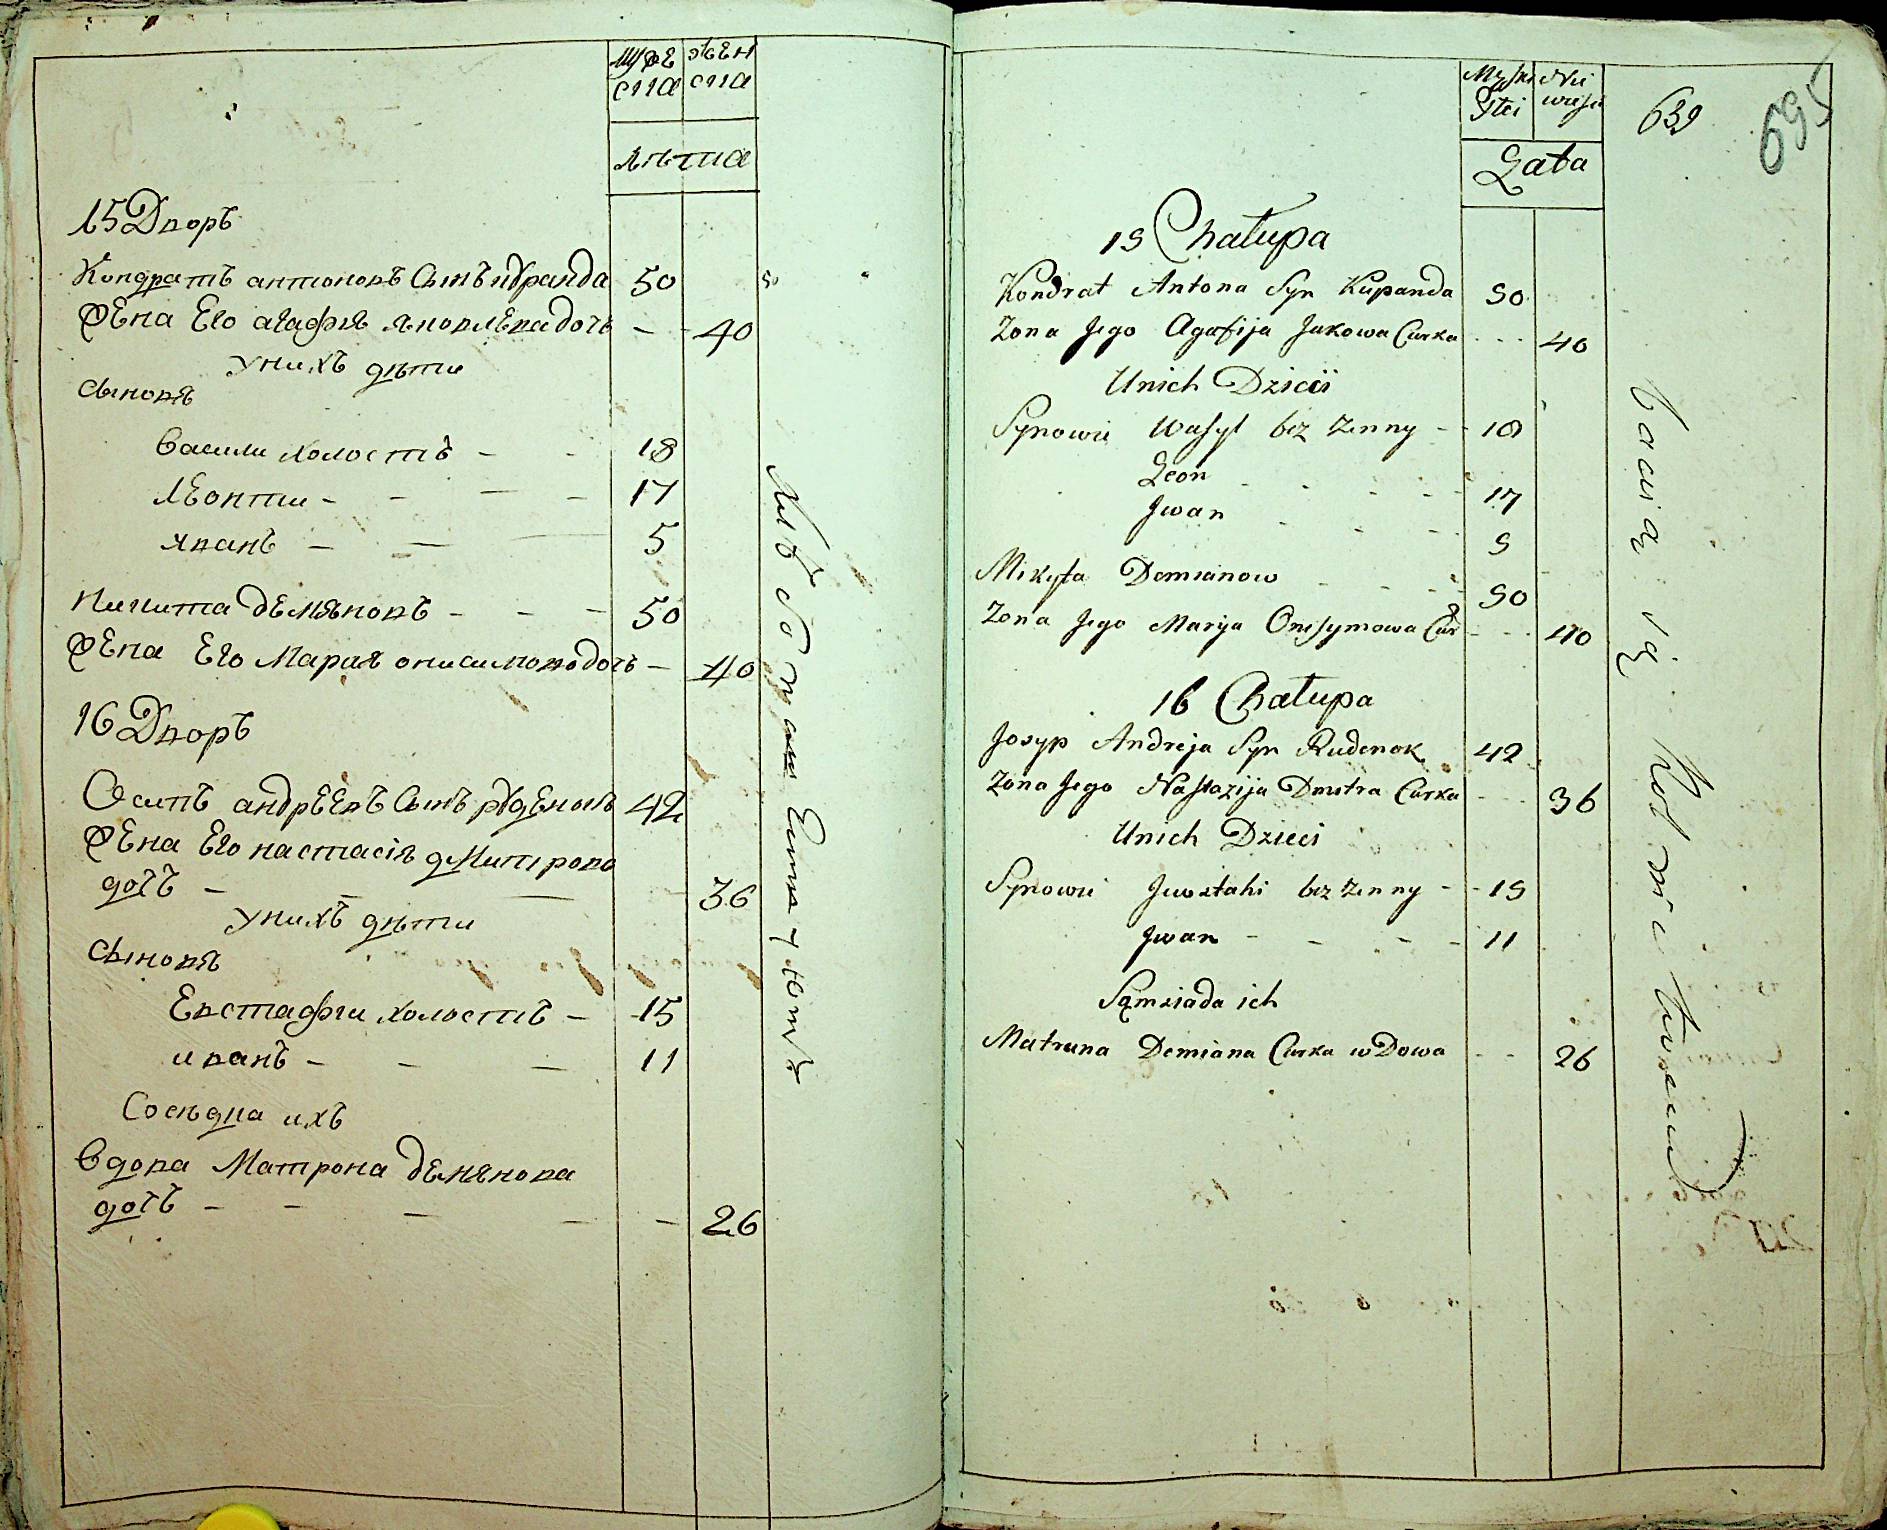 муже жен
ска ска
лѣта
15 Дворъ
Кондратъ антоновъ Сынъ купанда 50
жена Его агафия яковлева дочь — 40
у нихъ дѣти
Сыновя
Васили холостъ — 18
леонти — 17
иванъ — 5
никита демяновъ — 50
жена Его Мария онисимова дочь — 40
16 Дворъ
Осипъ андреевъ Сынъ руденокъ 42
жена Его настасія дмитрова
дочь — 36
у нихъ дѣти
Сыновя
Евстафги холостъ — 15
иванъ — 11
Соседка ихъ
вдова Матрона демянова
дочь — 26
Męski Nie
Stei wiesci
Lata
639
695
15 Chałupa
Kondrat Antona Syn Kupanda 50
Zona Jego Agafija Jakowa Curka 40
Unich Dzieci
Synowie Wasyl bez Zenny 18
Leon 17
Jwan 5
Mikyta Demianow 50
Zona Jego Marija Onisymowa Cur 40
16 Chałupa
Josyp Andreja Syn Rudenok 42
Zona Jego Nastazija Dmitra Curka 36
Unich Dzieci
Synowie Jwstahi bez Zenny 15
Jwan 11
Sąmsiada ich
Matruna Demiana Curka wDowa 26